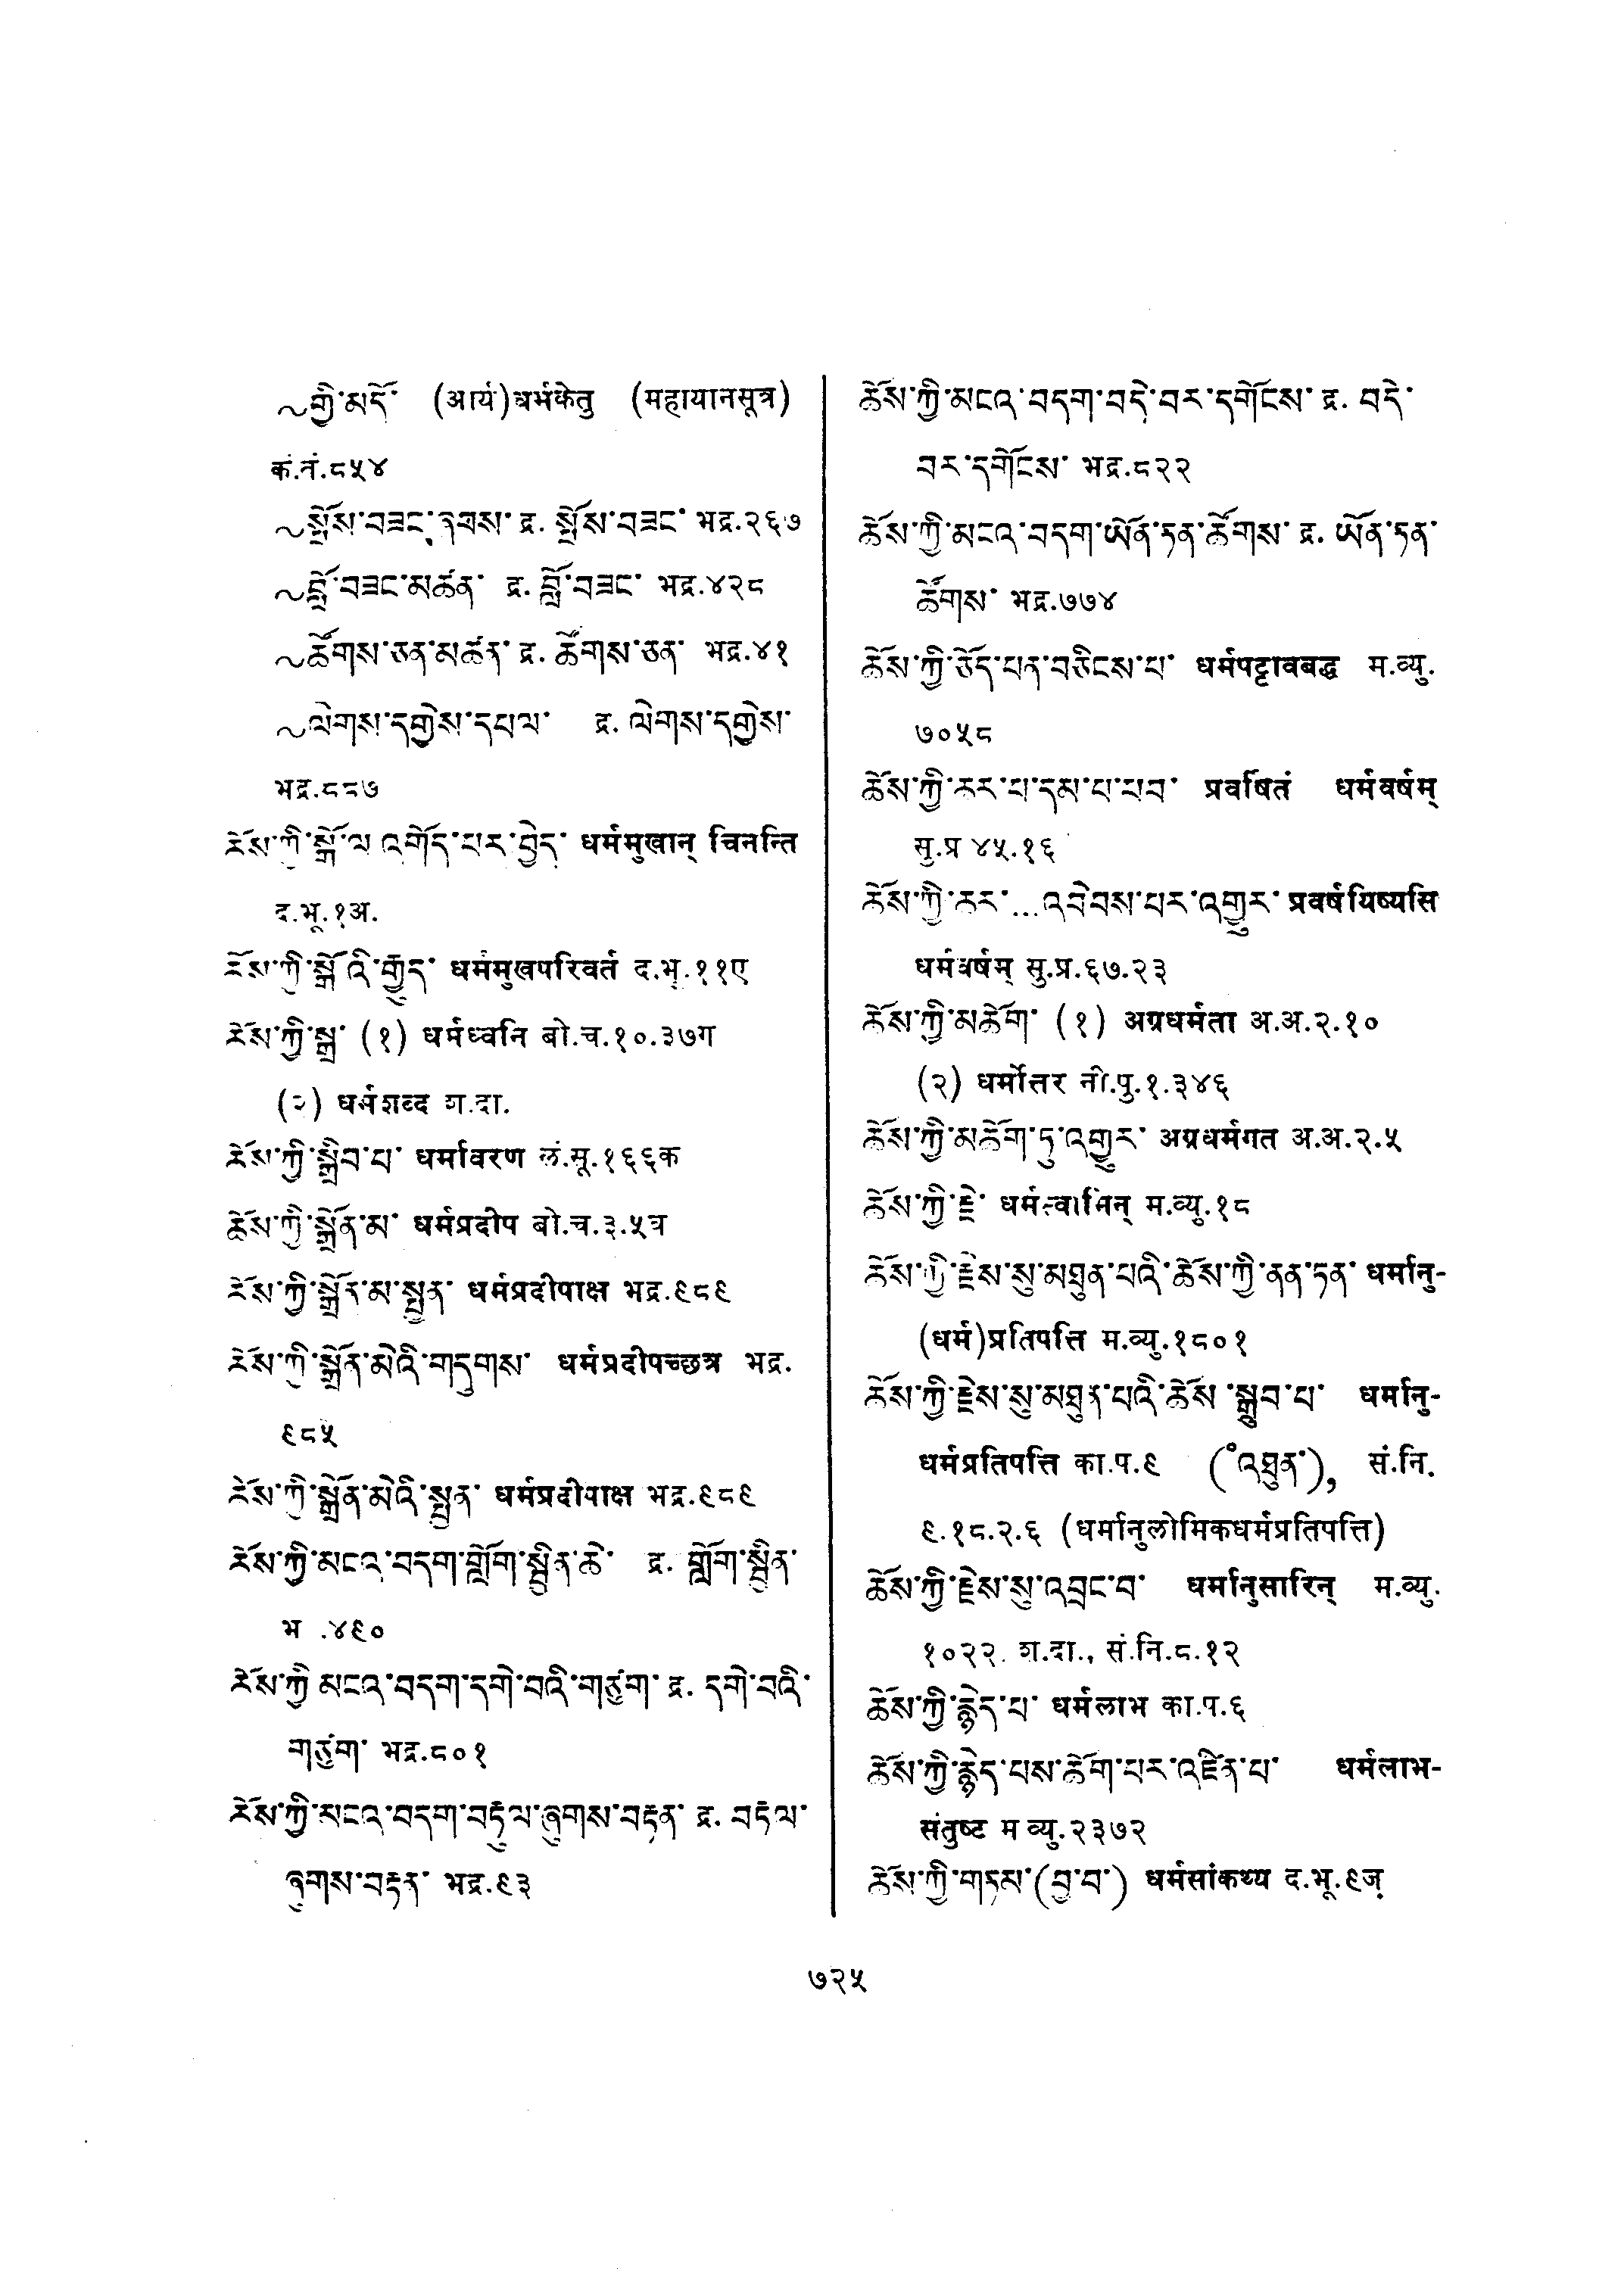 ~གྱི་མདོ་ (आर्य)धर्मकेतु (महायानसूत्र)
कं.तं.८५४
~སྤོས་བཟང་ཞབས་ द्र. སྤོས་བཟང་ भद्र.२६७
~བློ་བཟང་མཚན་ द्र. བློ་བཟང་ भद्र.४२८
~ཚོགས་ཅན་མཚན་ द्र. ཚོགས་ཅན་ भद्र.४१
~ལེགས་དགྱེས་དཔལ་ द्र. ལེགས་དགྱེས་
भद्र.८८७
ཆོས་ཀྱི་སྒོ་ལ་འགོད་པར་བྱེད་ धर्ममुखान् चिनन्ति
द.भू.१अ.
ཆོས་ཀྱི་སྒོའི་རྒྱུད་ धर्ममुखपरिवर्त द.भू.११ए
ཆོས་ཀྱི་སྒྲ་ (१) धर्मध्वनि बो.च.१०.३७ग
(२) धर्मशब्द श.दा.
ཆོས་ཀྱི་སྒྲིབ་པ་ धर्मावरण लं.सू.१६६क
ཆོས་ཀྱི་སྒྲོན་མ་ धर्मप्रदीप बो.च.३.५त्र
ཆོས་ཀྱི་སྒྲོན་མ་སྤྱན་ धर्मप्रदीपाक्ष भद्र.९८९
ཆོས་ཀྱི་སྒྲོན་མེའི་གདུགས་ धर्मप्रदीपच्छत्र भद्र.
९८५
ཆོས་ཀྱི་སྒྲོན་མེའི་སྤྱན་ धर्मप्रदीपाक्ष भद्र.९८९
ཆོས་ཀྱི་མངའ་བདག་གློག་སྤྲིན་ཆེ་ द्र. གློག་སྤྲིན་
भ .४९०
ཆོས་ཀྱི་མངའ་བདག་དགེ་བའི་གཙུག་ द्र. དགེ་བའི་
གཙུག་ भद्र.८०१
ཆོས་ཀྱི་མངའ་བདག་བརྟུལ་ཞུགས་བརྟན་ द्र. བརྟུལ་
ཞུགས་བརྟན་ भद्र.९३
ཆོས་ཀྱི་མངའ་བདག་བདེ་བར་དགོངས་ द्र. བདེ་
བར་དགོངས་ भद्र.८२२
ཆོས་ཀྱི་མངའ་བདག་ཡོན་ཏན་ཚོགས་ द्र. ཡོན་ཏན་
ཚོགས་ भद्र.७७४
ཆོས་ཀྱི་ཅོད་པན་བཅིངས་པ་ धर्मपट्टावबद्ध म.व्यु.
७०५८
ཆོས་ཀྱི་ཆར་པ་དམ་པ་པབ་ प्रवर्षितं धर्मवर्षम्
सु.प्र ४५.१६
ཆོས་ཀྱི་ཆར་...འབེབས་པར་འགྱུར་ प्रवर्षयिष्यसि
धर्मवर्षम् सु.प्र.६७.२३
ཆོས་ཀྱི་མཆོག་ (१) अग्रधर्मता अ.अ.२.१०
(२) धर्मोत्तर नी.पु.१.३४६
ཆོས་ཀྱི་མཆོག་ཏུ་འགྱུར་ अग्रधर्मगत अ.अ.२.५
ཆོས་ཀྱི་རྗེ་ धर्मस्वामिन् म.व्यु.१८
ཆོས་ཀྱི་རྗེས་སུ་མཐུན་པའི་ཆོས་ཀྱི་ནན་ཏན་ धर्मानु-
(धर्म)प्रतिपत्ति म.व्यु.१८०१
ཆོས་ཀྱི་རྗེས་སུ་མཐུན་པའི་ཆོས་སྒྲུབ་པ་ धर्मानु-
धर्मप्रतिपत्ति का.प.९ (°འཐུན་), सं.नि.
९.१८.२.६ (धर्मानुलोमिकधर्मप्रतिपत्ति)
ཆོས་ཀྱི་རྗེས་སུ་འབྲང་བ་ धर्मानुसारिन् म.व्यु.
१०२२. श.दा., सं.नि.८.१२
ཆོས་ཀྱི་རྙེད་པ་ धर्मलाभ का.प.६
ཆོས་ཀྱི་རྙེད་པས་ཆོག་པར་འཛིན་པ་ धर्मलाभ-
संतुष्ट म व्यु.२३७२
ཆོས་ཀྱི་གཏམ་(བྱ་བ་) धर्मसांकथ्य द.भू.९ज्
७२५